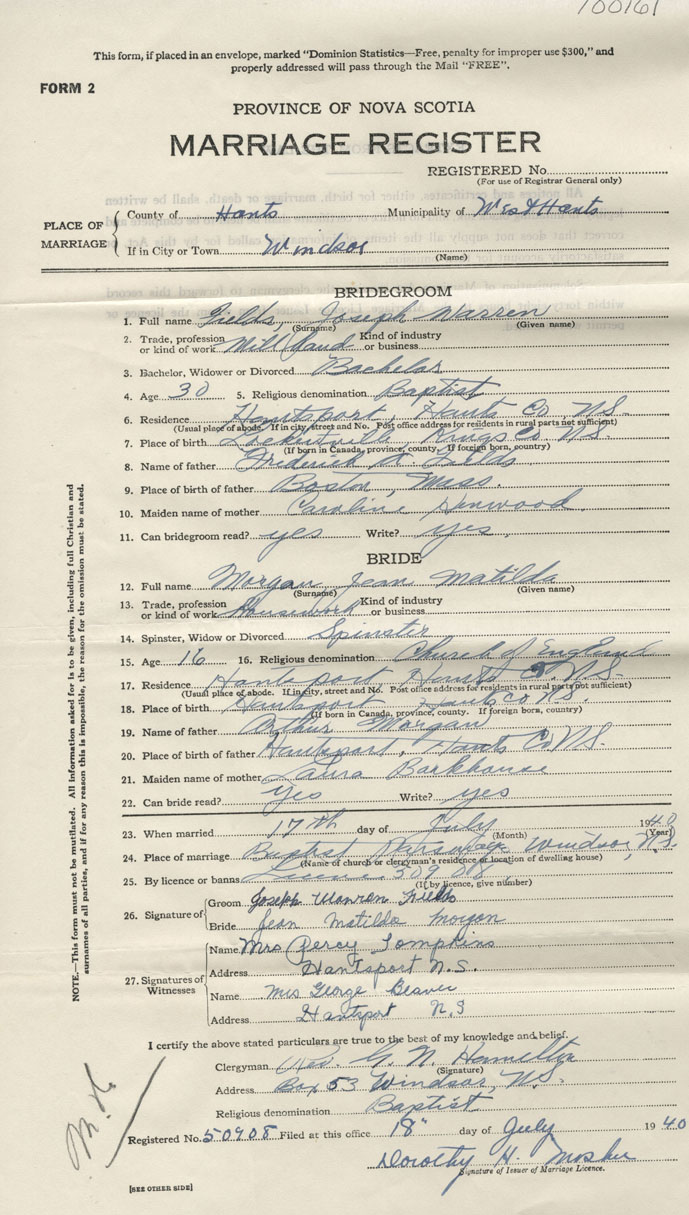 100161
This form, if placed in an envelope, marked "Dominion Statistics—Free, penalty for improper use $300," and
properly addressed will pass through the Mail "FREE".
FORM 2
PROVINCE OF NOVA SCOTIA
MARRIAGE REGISTER
REGISTERED No.
(For use of Registrar General only)
PLACE OF MARRIAGE
County of Hants Municipality of West Hants
If in City or Town Windsor
(Name)
BRIDEGROOM
1. Full name Fields, Joseph Warren
(Surname) (Given name)
2. Trade, profession or kind of work Mill Hand Kind of industry or business
3. Bachelor, Widower or Divorced Bachelor
4. Age 30 5. Religious denomination Baptist
6. Residence Hantsport, Hants Co. N.S.
(Usual place of abode. If in city, street and No. Post office address for residents in rural parts not sufficient)
7. Place of birth Lockhartville, Kings Co. N.S.
(If born in Canada, province, county. If foreign born, country)
8. Name of father Frederick Fields
9. Place of birth of father Boston, Mass.
10. Maiden name of mother Caroline
11. Can bridegroom read? yes Write? yes
BRIDE
12. Full name Morgan, Jean Matilda
(Surname) (Given name)
13. Trade, profession or kind of work Housework Kind of industry or business
14. Spinster, Widow or Divorced Spinster
15. Age 16 16. Religious denomination Church of England
17. Residence Hantsport, Hants Co. N.S.
(Usual place of abode. If in city, street and No. Post office address for residents in rural parts not sufficient)
18. Place of birth Hantsport Hants Co N.S.
(If born in Canada, province, county. If foreign born, country)
19. Name of father Arthur Morgan
20. Place of birth of father Hantsport, Hants Co N.S.
21. Maiden name of mother Laura Barkhouse
22. Can bride read? yes Write? yes
23. When married 17th day of July 1940
(Month) (Year)
24. Place of marriage Baptist Parsonage Windsor, N.S.
(Name of church or clergyman's residence or location of dwelling house)
25. By licence or banns License 50908
(If by licence, give number)
26. Signature of
Groom Joseph Warren Fields
Bride Jean Matilda Morgan
27. Signatures of Witnesses
Name Mrs Percy Tompkins
Address Hantsport N.S.
Name Mrs George Beaver
Address Hantsport N.S
I certify the above stated particulars are true to the best of my knowledge and belief.
Clergyman Rev. G. N. Hamilton
(Signature)
Address Box 53 Windsor, N.S.
Religious denomination Baptist
Registered No. 50908 Filed at this office 18" day of July 1940
Dorothy H. Mosher
Signature of Issuer of Marriage Licence.
[SEE OTHER SIDE]
NOTE.—This form must not be mutilated. All information asked for is to be given, including full Christian and
surnames of all parties, and if for any reason this is impossible, the reason for the omission must be stated.